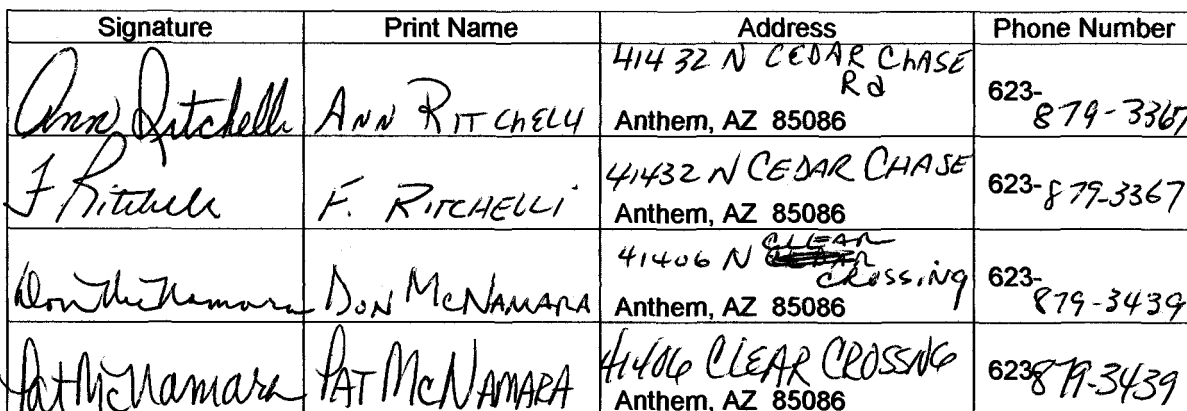 Signature Print Name Address Phone Number
Ann Ritchelli ANN RITCHELLI 41432 N CEDAR CHASE Rd Anthem, AZ 85086 623-879-3367
F Ritchelli F. RITCHELLI 41432 N CEDAR CHASE Anthem, AZ 85086 623-879-3367
Don McNamara DON MCNAMARA 41406 N CLEAR CROSSING Anthem, AZ 85086 623-879-3439
Pat McNamara PAT MCNAMARA 41406 CLEAR CROSSING Anthem, AZ 85086 623-879-3439